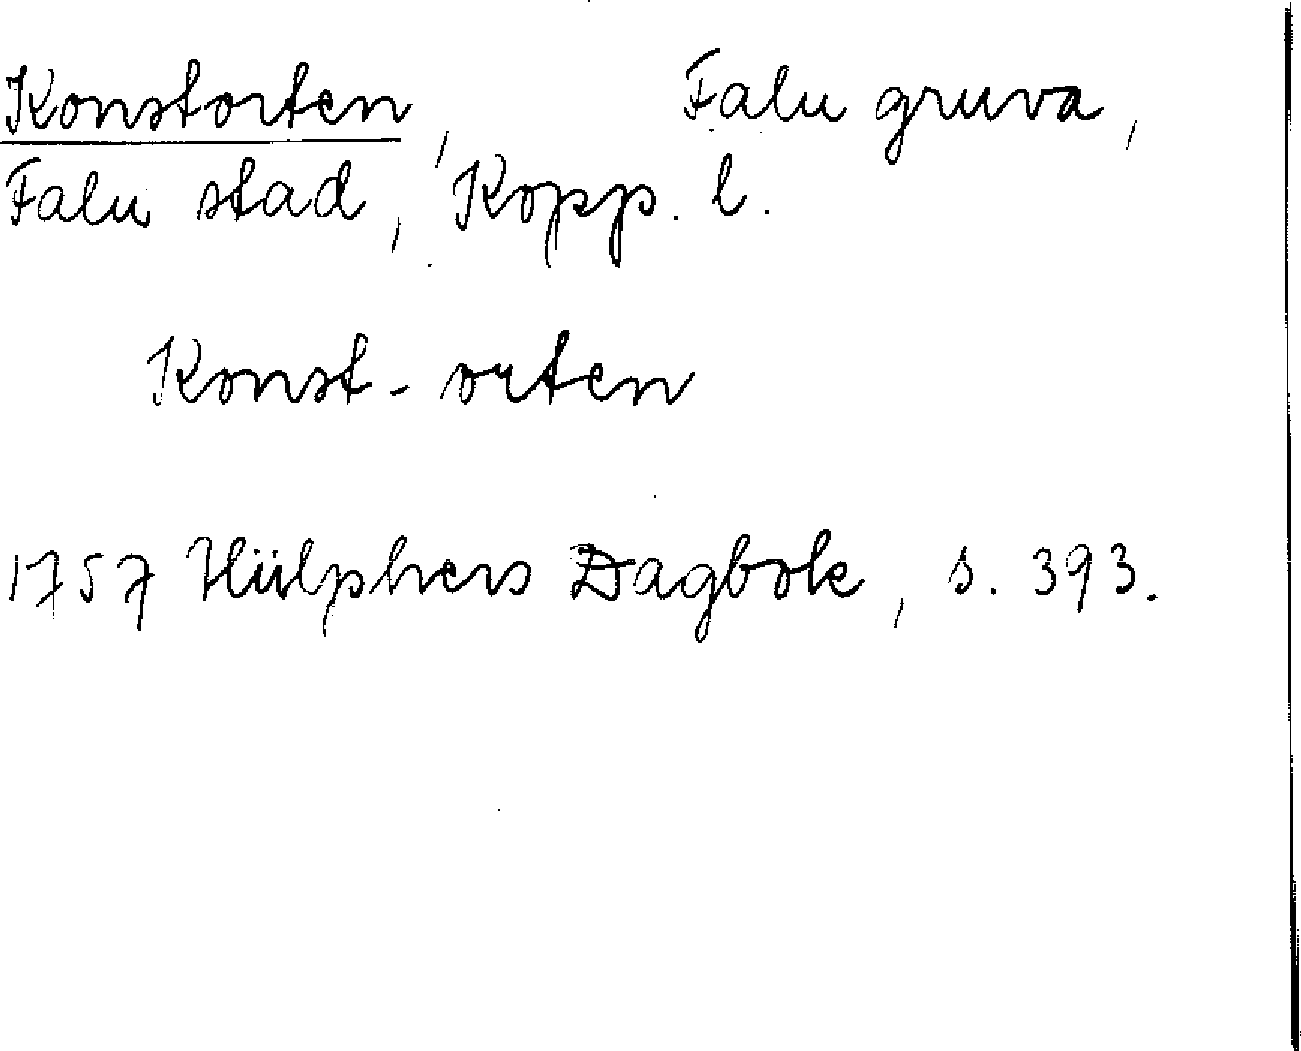 Konstorten, Falu gruva,
Falu stad, Kopp. l.
Konst-orten
1757 Hülphers Dagbok, s. 393.